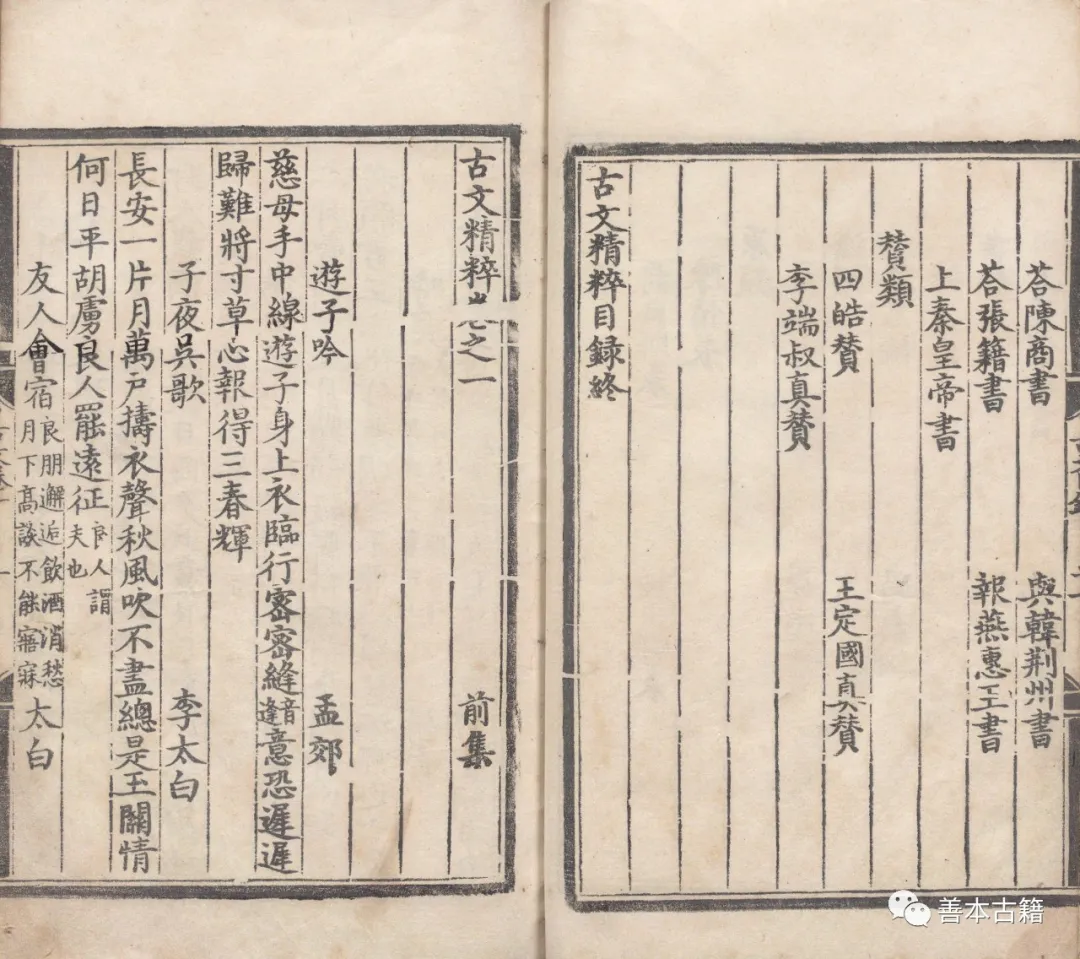 荅陳商書 與韓荆州書
荅張籍書 報燕惠王書
上秦皇帝書
賛類
四皓賛 王定國真賛
李端叔真賛
古文精粹目録終
古文精粹卷之一 前集
遊子吟 孟郊
慈母手中線遊子身上衣臨行密密縫音逢意恐遲遲
歸難將寸草心報得三春輝
子夜吳歌 李太白
長安一片月萬户擣衣聲秋風吹不盡總是玉關情
何日平胡虜良人罷遠征良人謂夫也
友人會宿良朋邂逅飲酒消愁月下高談不能寤寐 太白
善本古籍